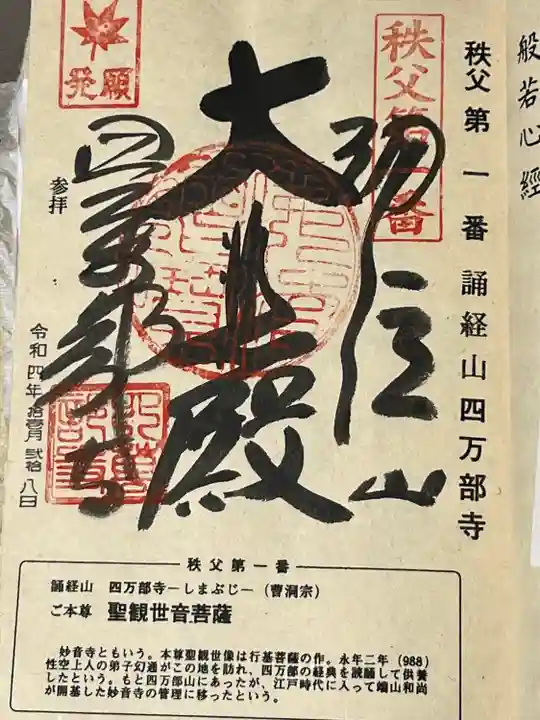 般若心經
秩父第一番 誦経山四万部寺
秩父第一番
誦経山
大悲殿
四萬部寺
発願
参拝
令和四年拾壱月弐拾八日
秩父第一番
誦経山 四万部寺－しまぶじ－（曹洞宗）
ご本尊 聖観世音菩薩
妙音寺ともいう。本尊聖観世像は行基菩薩の作。永年二年（988）
性空上人の弟子幻通がこの地を訪れ、四万部の経典を読誦して供養
したという。もと四万部山にあったが、江戸時代に入って端山和尚
が開基した妙音寺の管理に移ったという。